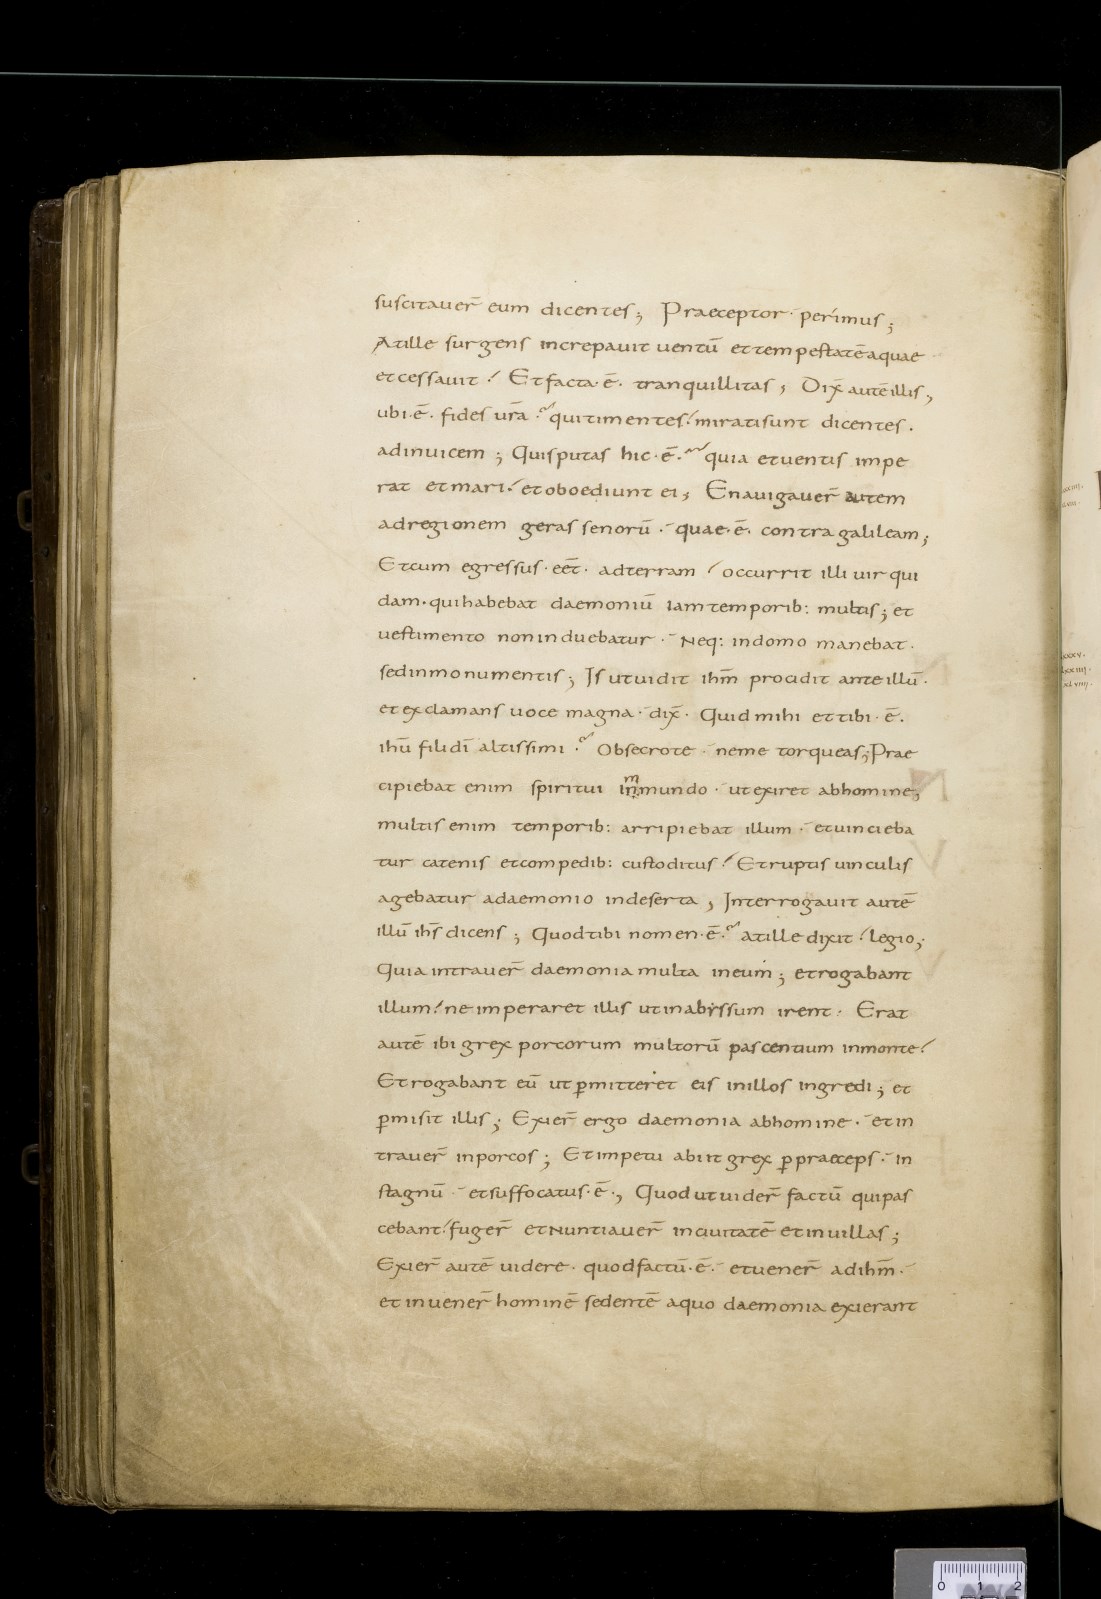 suscitauer̄ eum dicentes; Praeceptor· perimus;
Atille surgens increpauit uentū et tempestatē aquae
et cessauit; Et facta·ē· tranquillitas; Dix̄ autē illis;
ubi·ē· fides ur̄a·? qui timentes miratisunt dicentes·
adinuicem; Quisputas hic·ē·? quia etuentis impe
rat et mari· et oboediunt ei; Enauigauer̄ autem
adregionem gerassenorū· quae·ē· contra galileam;
Etcum egressus·eēt· adterram occurrit illi uir qui
dam· quihabebat daemoniū iam temporib: multis; et
uestimento non induebatur· Neq: indomo manebat·
sedinmonumentis; Is utuidit ihm̄ procidit ante illū·
et exclamans uoce magna· dix̄· Quid mihi et tibi·ē·
ihū fili dī altissimi·? Obsecrote· neme torqueas; Prae
cipiebat enim spiritui inmmundo· ut exiret abhomine;
multis enim temporib: arripiebat illum· etuincieba
tur catenis etcompedib: custoditus· Etruptis uinculis
agebatur adaemonio indeserta; Interrogauit autē
illū ihs̄ dicens; Quodtibi nomen·ē·? atille dixit· legio;
Quia intrauer̄ daemonia multa ineum; etrogabant
illum· ne imperaret illis utinabyssum irent· Erat
autē ibi grex porcorum multorū pascentium inmonte·
Etrogabant eū ut p̄mitteret eis inillos ingredi; et
p̄misit illis; Exier̄ ergo daemonia abhomine· etin
trauer̄ inporcos; Etimpetu abiit grex p̄ praeceps· in
stagnū· etsuffocatus·ē·; Quod utuider̄ factū quipas
cebant· fuger̄ et Nuntiauer̄ inciuitatē et in uillas;
Exier̄ autē uidere· quodfactū·ē· etuener̄ adihm̄·
et inuener̄ hominē sedentē aquo daemonia exierant
0 1 2